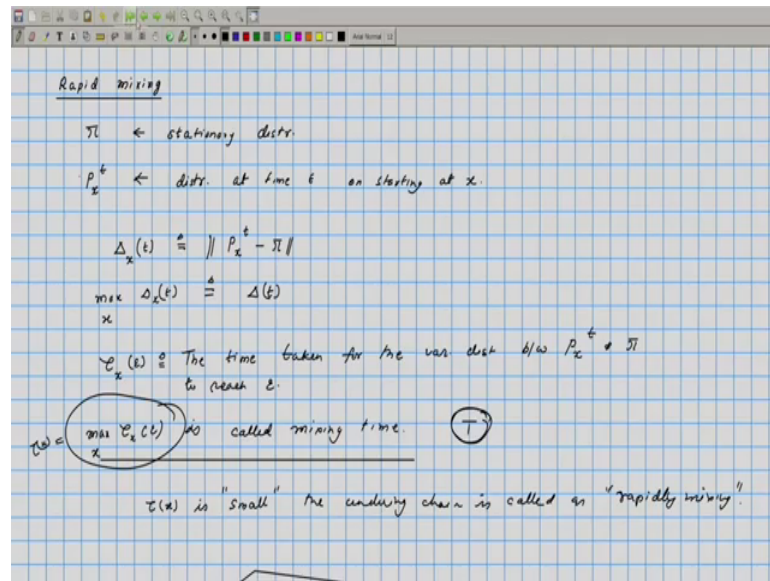 Arial Normal 12
Rapid mixing
π ← stationary distr.
P_x^t ← distr. at time t on starting at x.
Δ_x(t) ≜ || P_x^t - π ||
max_x Δ_x(t) ≜ Δ(t)
τ_x(ε) ≜ The time taken for the var. dist b/w P_x^t & π
to reach ε.
τ(ε) = max_x τ_x(ε) is called mixing time. T
τ(x) is "small" the chain is called as "rapidly mixing".